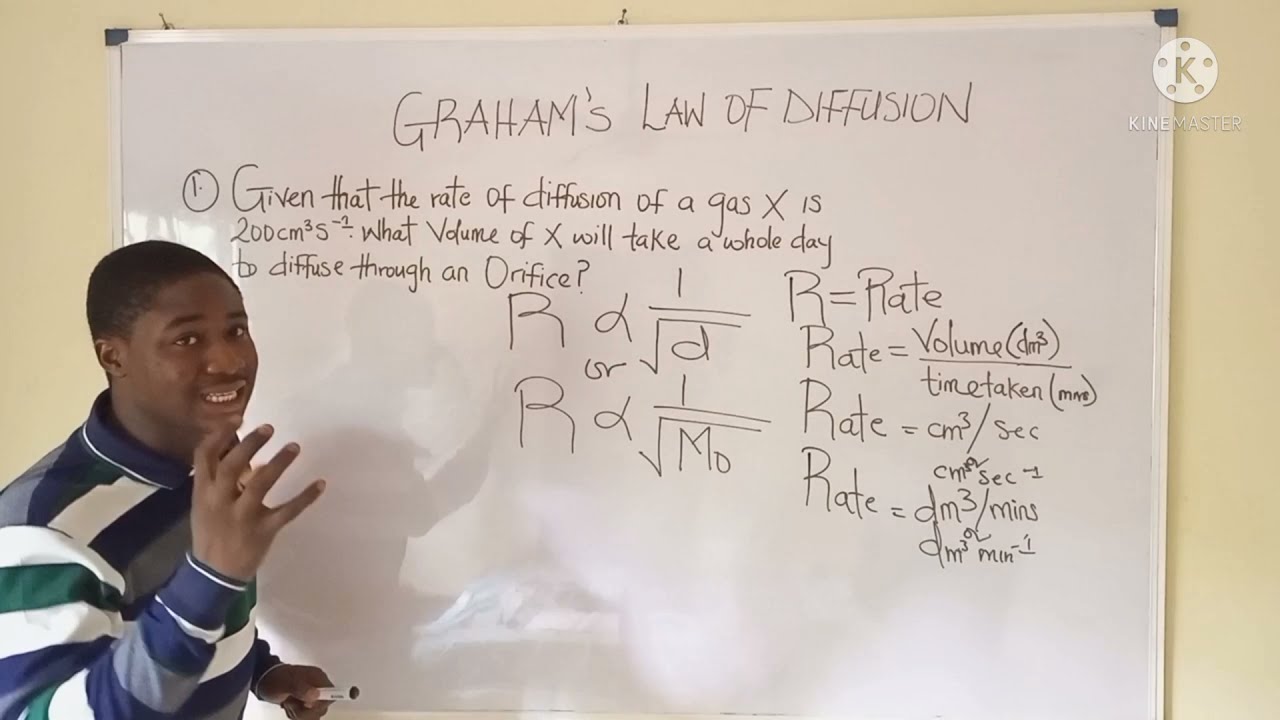 GRAHAM'S LAW OF DIFFUSION
1. Given that the rate of diffusion of a gas X is
200cm³s⁻¹. What Volume of X will take a whole day
to diffuse through an Orifice?
R ∝ 1/√d
or
R ∝ 1/√M₀
R = Rate
Rate = Volume (dm³)/time taken (mins)
Rate = cm³/sec
or
cm³ sec⁻¹
Rate = dm³/mins
or
dm³ min⁻¹
K
KINEMASTER